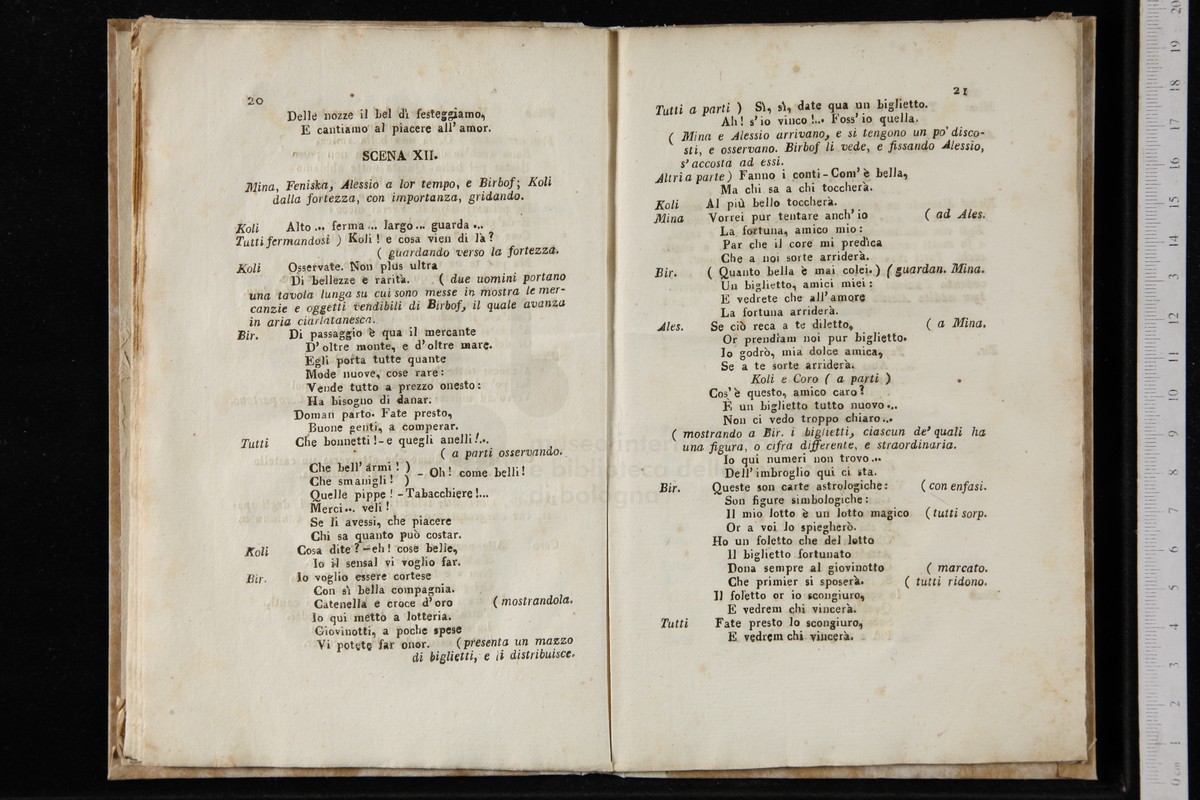 20
Delle nozze il bel dì festeggiamo,
E cantiamo al piacere all' amor.
SCENA XII.
Mina, Feniska, Alessio a lor tempo, e Birbof; Koli
dalla fortezza, con importanza, gridando.
Koli Alto ... ferma ... largo ... guarda ...
Tutti fermandosi ) Koli ! e cosa vien di là ?
( guardando verso la fortezza.
Koli Osservate. Non plus ultra
Di bellezze e rarità. ( due uomini portano
una tavola lunga su cui sono messe in mostra le mer-
canzie e oggetti vendibili di Birbof, il quale avanza
in aria ciarlatanesca.
Bir. Di passaggio è qua il mercante
D' oltre monte, e d' oltre mare.
Egli porta tutte quante
Mode nuove, cose rare :
Vende tutto a prezzo onesto :
Ha bisogno di danar.
Doman parto. Fate presto,
Buone genti, a comperar.
Tutti Che bonnetti ! - e quegli anelli ! ...
( a parti osservando.
Che bell' armi ! )
Che smanigli ! ) - Oh ! come belli !
Quelle pippe ! - Tabacchiere !...
Merci ... veli !
Se li avessi, che piacere
Chi sa quanto può costar.
Koli Cosa dite ? - eh ! cose belle,
Io il sensal vi voglio far.
Bir. Io voglio essere cortese
Con sì bella compagnia.
Catenella e croce d' oro ( mostrandola.
Io qui metto a lotteria.
Giovinotti, a poche spese
Vi potete far onor. ( presenta un mazzo
di biglietti, e li distribuisce.
21
Tutti a parti ) Sì, sì, date qua un biglietto.
Ah ! s' io vinco !... Foss' io quella.
( Mina e Alessio arrivano, e si tengono un po' disco-
sti, e osservano. Birbof li vede, e fissando Alessio,
s' accosta ad essi.
Altri a parte ) Fanno i conti - Com' è bella,
Ma chi sa a chi toccherà.
Koli Al più bello toccherà.
Mina Vorrei pur tentare anch' io ( ad Ales.
La fortuna, amico mio :
Par che il core mi predica
Che a noi sorte arriderà.
Bir. ( Quanto bella è mai colei. ) ( guardan. Mina.
Un biglietto, amici miei :
E vedrete che all' amore
La fortuna arriderà.
Ales. Se ciò reca a te diletto, ( a Mina.
Or prendiam noi pur biglietto.
Io godrò, mia dolce amica,
Se a te sorte arriderà.
Koli e Coro ( a parti )
Cos' è questo, amico caro ?
È un biglietto tutto nuovo ...
Non ci vedo troppo chiaro ...
( mostrando a Bir. i biglietti, ciascun de' quali ha
una figura, o cifra differente, e straordinaria.
Io qui numeri non trovo ...
Dell' imbroglio qui ci sta.
Bir. Queste son carte astrologiche : ( con enfasi.
Son figure simbologiche :
Il mio lotto è un lotto magico ( tutti sorp.
Or a voi lo spiegherò.
Ho un foletto che del lotto
Il biglietto fortunato
Dona sempre al giovinotto ( marcato.
Che primier si sposerà. ( tutti ridono.
Il foletto or io scongiuro,
E vedrem chi vincerà.
Tutti Fate presto lo scongiuro,
E vedrem chi vincerà.